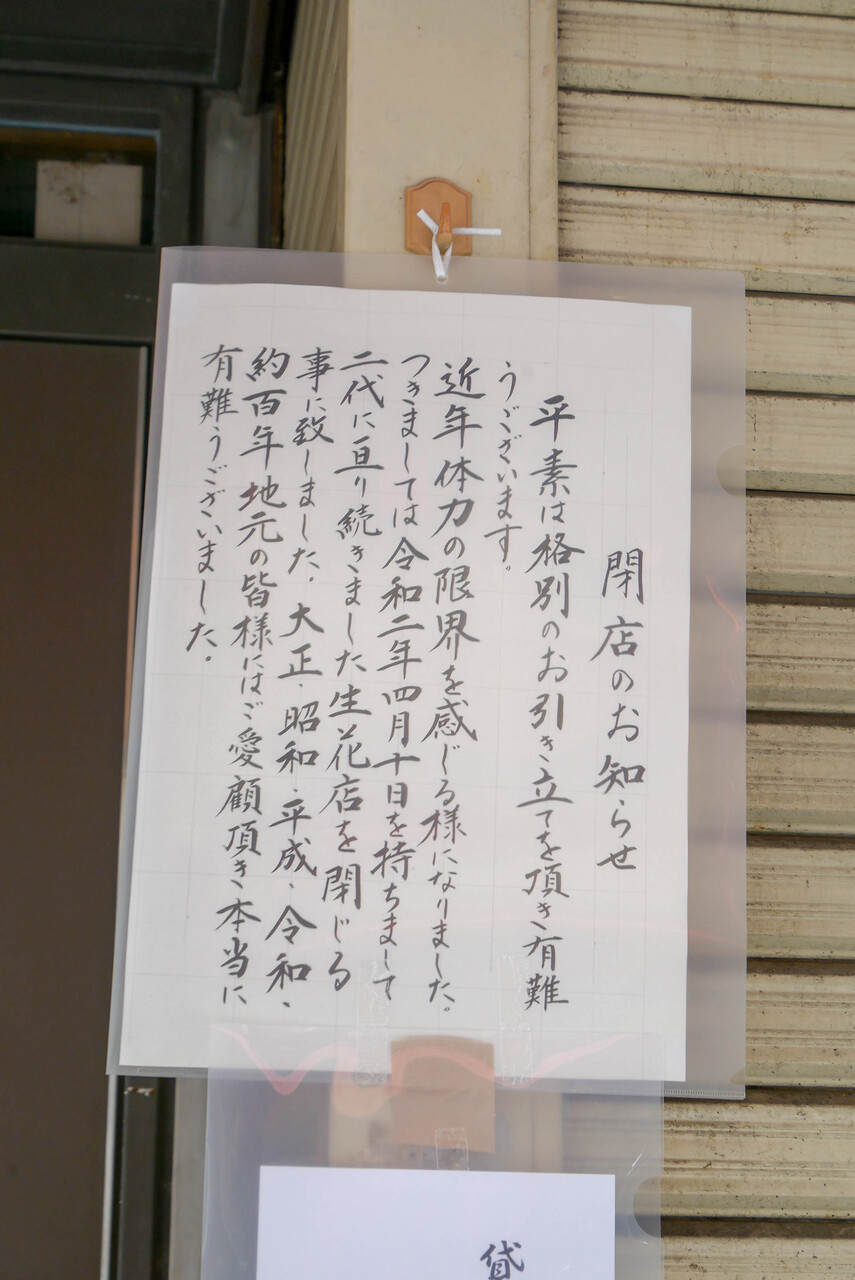 閉店のお知らせ
平素は格別のお引き立てを頂き有難
うございます。
近年体力の限界を感じる様になりました。
つきましては令和二年四月十日を持ちまして
二代に亘り続きました生花店を閉じる
事に致しました。大正・昭和・平成・令和・
約百年地元の皆様にはご愛顧頂き本当に
有難うございました。
貸